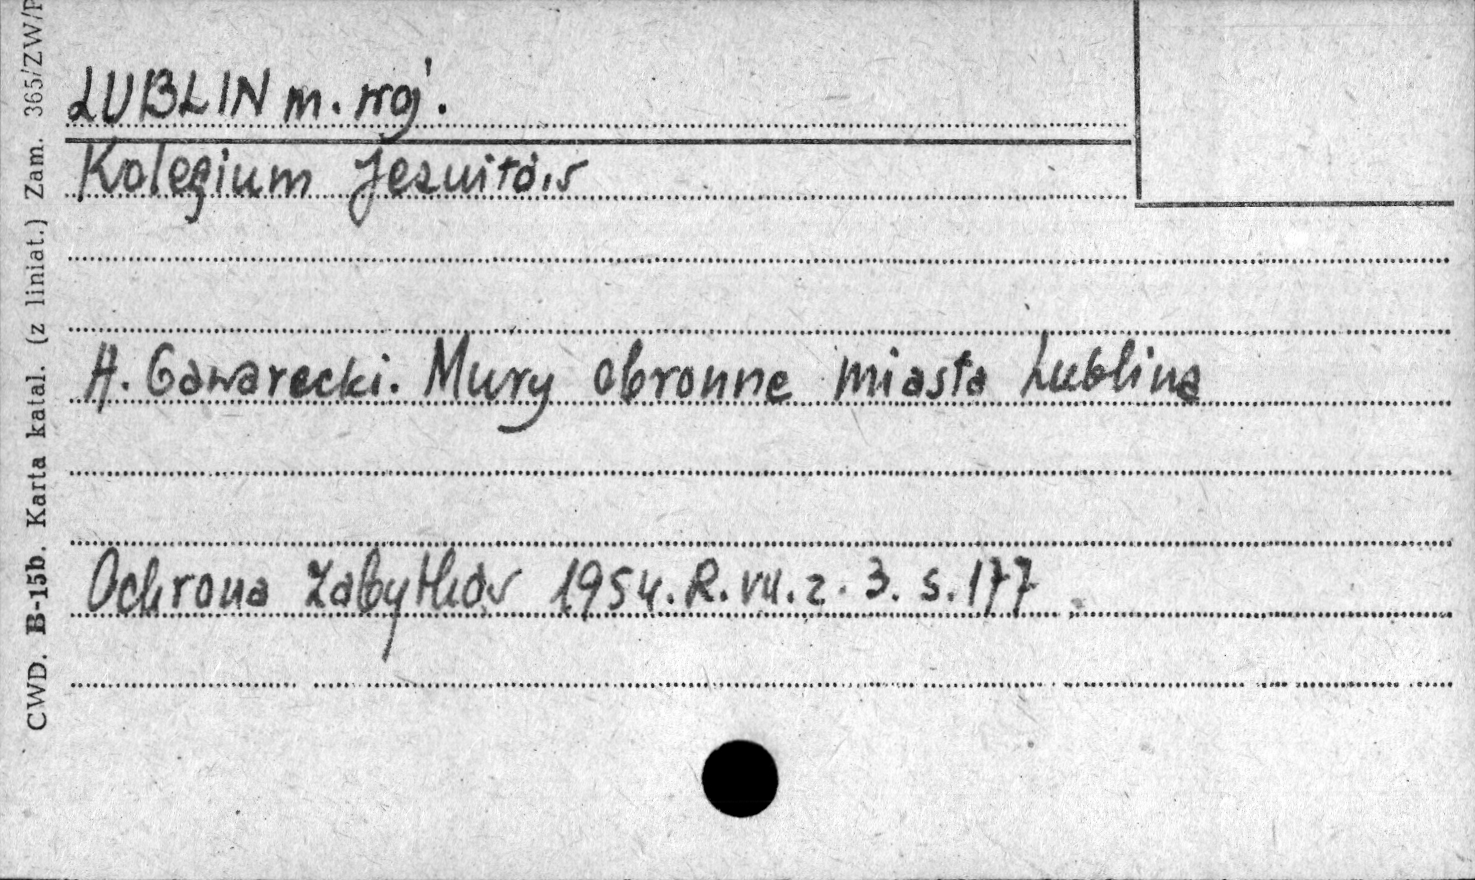 LUBLIN m. woj.
Kolegium Jezuitów
H. Gawarecki. Mury obronne miasta Lublina
Ochrona Zabytków 1954. R. VII. z. 3. s. 177
CWD. B-15b. Karta katal. (z liniat.) Zam. 365/ZW/P